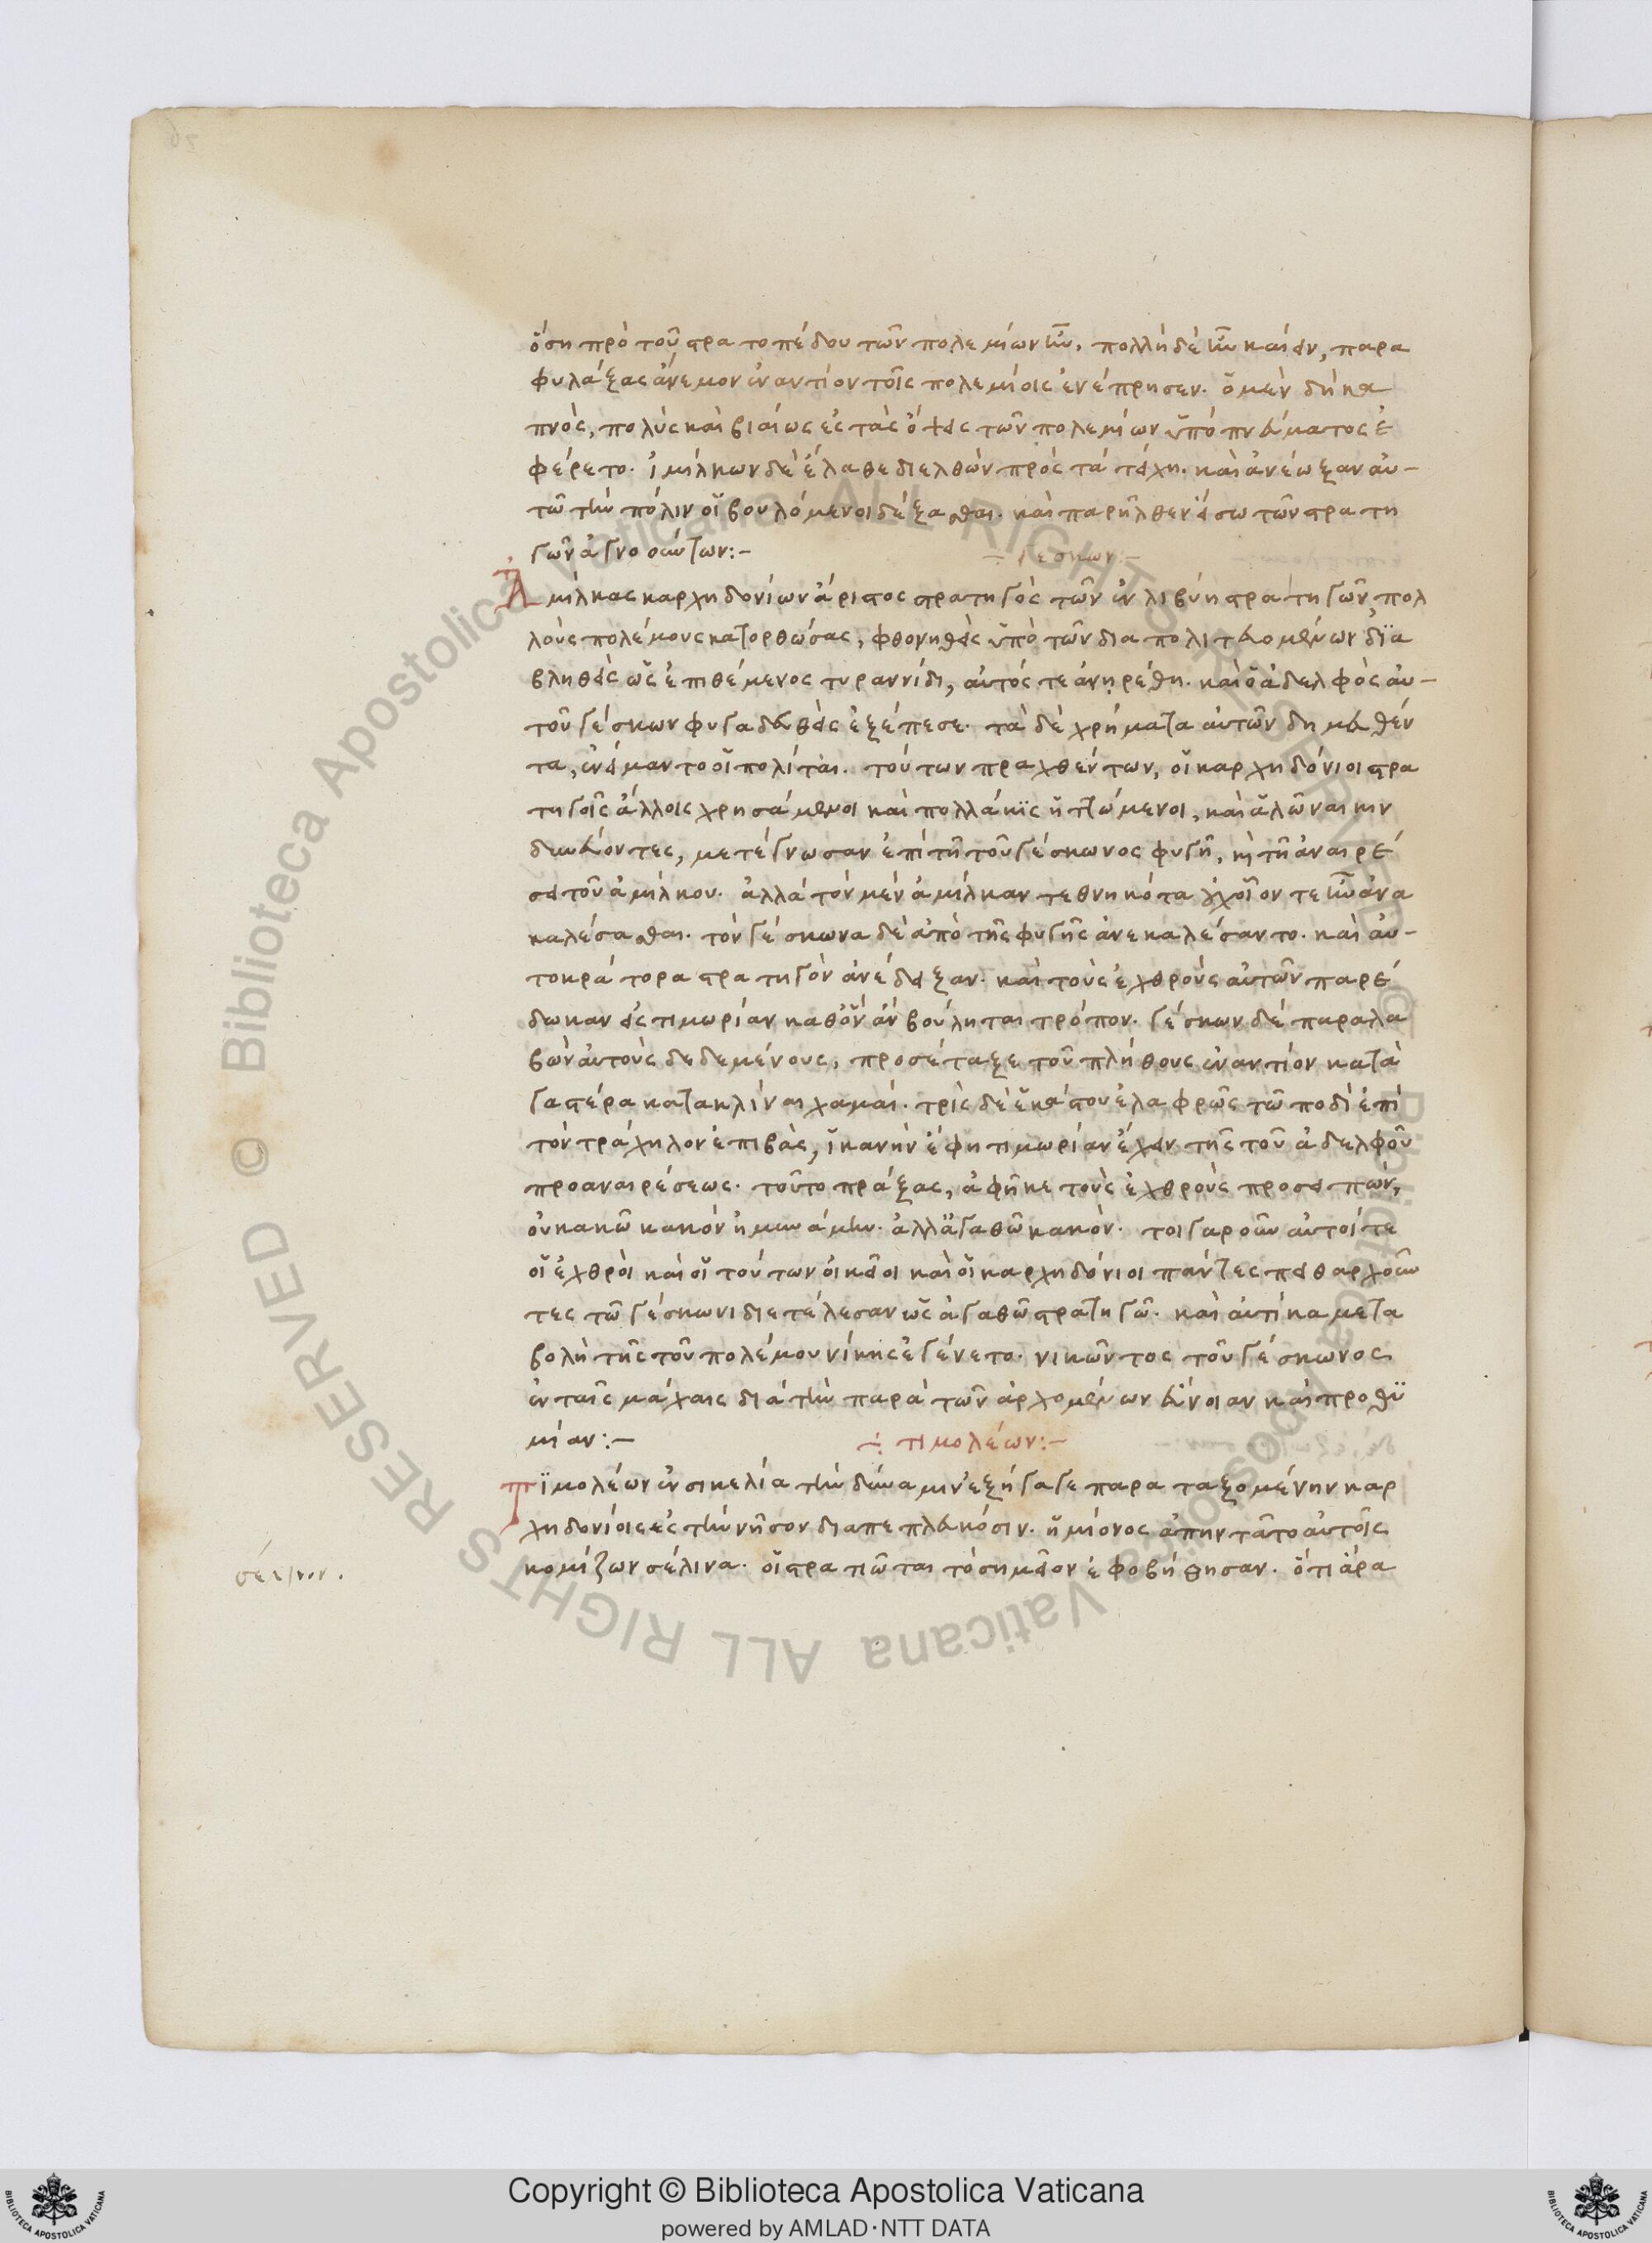 ὅση πρὸ τοῦ στρατοπέδου τῶν πολεμίων ἦν, πολλὴ δὲ ἦν καίειν, παρα
φυλάξας ἄνεμον ἐναντίον τοῖς πολεμίοις ἐνέπρησεν. ὁ μὲν δὴ κα
πνὸς, πολὺς καὶ βιαίως ἐς τὰς ὄψεις τῶν πολεμίων ὑπὸ πνεύματος ἐ
φέρετο. ἰμίλκων δὲ ἔλαθε διελθὼν πρὸς τὰ τείχη. καὶ ἀνέωξαν αὐ-
τῶ τὴν πόλιν οἱ βουλόμενοι δέξασθαι. καὶ παρῆλθεν εἴσω τῶν στρατη
γῶν ἀγνοούντων:-
÷ γέσκων:-
Ἀμίλκας καρχηδονίων ἄριστος στρατηγὸς τῶν ἐν λιβύη στρατηγῶν πολ
λοὺς πολέμους κατορθώσας, φθονηθεὶς ὑπὸ τῶν διαπολιτευομένων δϊα
βληθεὶς ὡς ἐπιθέμενος τυραννίδι, αὐτός τε ἀνῃρέθη. καὶ ὁ ἀδελφὸς αὐ-
τοῦ γέσκων φυγαδευθεὶς ἐξέπεσε. τὰ δὲ χρήματα αὐτῶν δημευθέν
τα, ἐνείμαντο οἱ πολίται. τούτων πραχθέντων, οἱ καρχηδόνιοι στρα
τηγοῖς ἄλλοις χρησάμενοι καὶ πολλάκϊς ἡττώμενοι, καὶ ἁλῶναι κιν
δυνεύοντες, μετέγνωσαν ἐπὶ τῆ τοῦ γέσκωνος φυγῆ, καὶ τῆ ἀναιρέ
σει τοῦ ἀμίλκου. ἀλλὰ τὸν μὲν ἀμίλκαν τεθνηκότα οὐχ οἷον τε ἦν ἀνα
καλέσασθαι. τὸν γέσκωνα δὲ ἀπὸ τῆς φυγῆς ἀνεκαλέσαντο. καὶ αὐ-
τοκράτορα στρατηγὸν ἀνέδειξαν. καὶ τοὺς ἐχθροὺς αὐτῶν παρέ
δωκαν εἰς τιμωρίαν καθ' ὃν ἂν βούληται τρόπον. γέσκων δὲ παραλα
βὼν αὐτοὺς δεδεμένους, προσέταξε τοῦ πλήθους ἐναντίον κατὰ
γαστέρα κατακλίναι χαμαί. τρὶς δὲ ἑκάστου ἐλαφρῶς τῶ ποδὶ ἐπὶ
τὸν τράχηλον ἐπιβὰς, ἱκανὴν ἔφη τιμωρίαν ἔχειν τῆς τοῦ ἀδελφοῦ
προαναιρέσεως. τοῦτο πράξας, ἀφῆκε τοὺς ἐχθροὺς προσειπών,
οὐ κακῶ κακὸν ἠμυνάμην. ἀλλ' ἀγαθῶ κακόν. τοιγαροῦν αὐτοί τε
οἱ ἐχθροὶ καὶ οἱ τούτων οἰκεῖοι καὶ οἱ καρχηδόνιοι πάντες πειθαρχοῦν
τες τῶ γέσκωνι διετέλεσαν ὡς ἀγαθῶ στρατηγῶ. καὶ αὐτίκα μετα
βολὴ τῆς τοῦ πολέμου νίκης ἐγένετο. νικῶντος τοῦ γέσκωνος
ἐν ταῖς μάχαις διὰ τὴν παρὰ τῶν ἀρχομένων εὔνοιαν καὶ προθϋ
μίαν:-
÷ τιμολέων:-
Τϊμολέων ἐν σικελία τὴν δύναμιν ἐξήγαγε παραταξομένην καρ
χηδονίοις ἐς τὴν νῆσον διαπεπλευκόσιν. ἡμίονος ἀπηντᾶτο αὐτοῖς
κομίζων σέλινα. οἱ στρατιῶται τὸ σημεῖον ἐφοβήθησαν. ὅτι ἄρα
σέλινον.